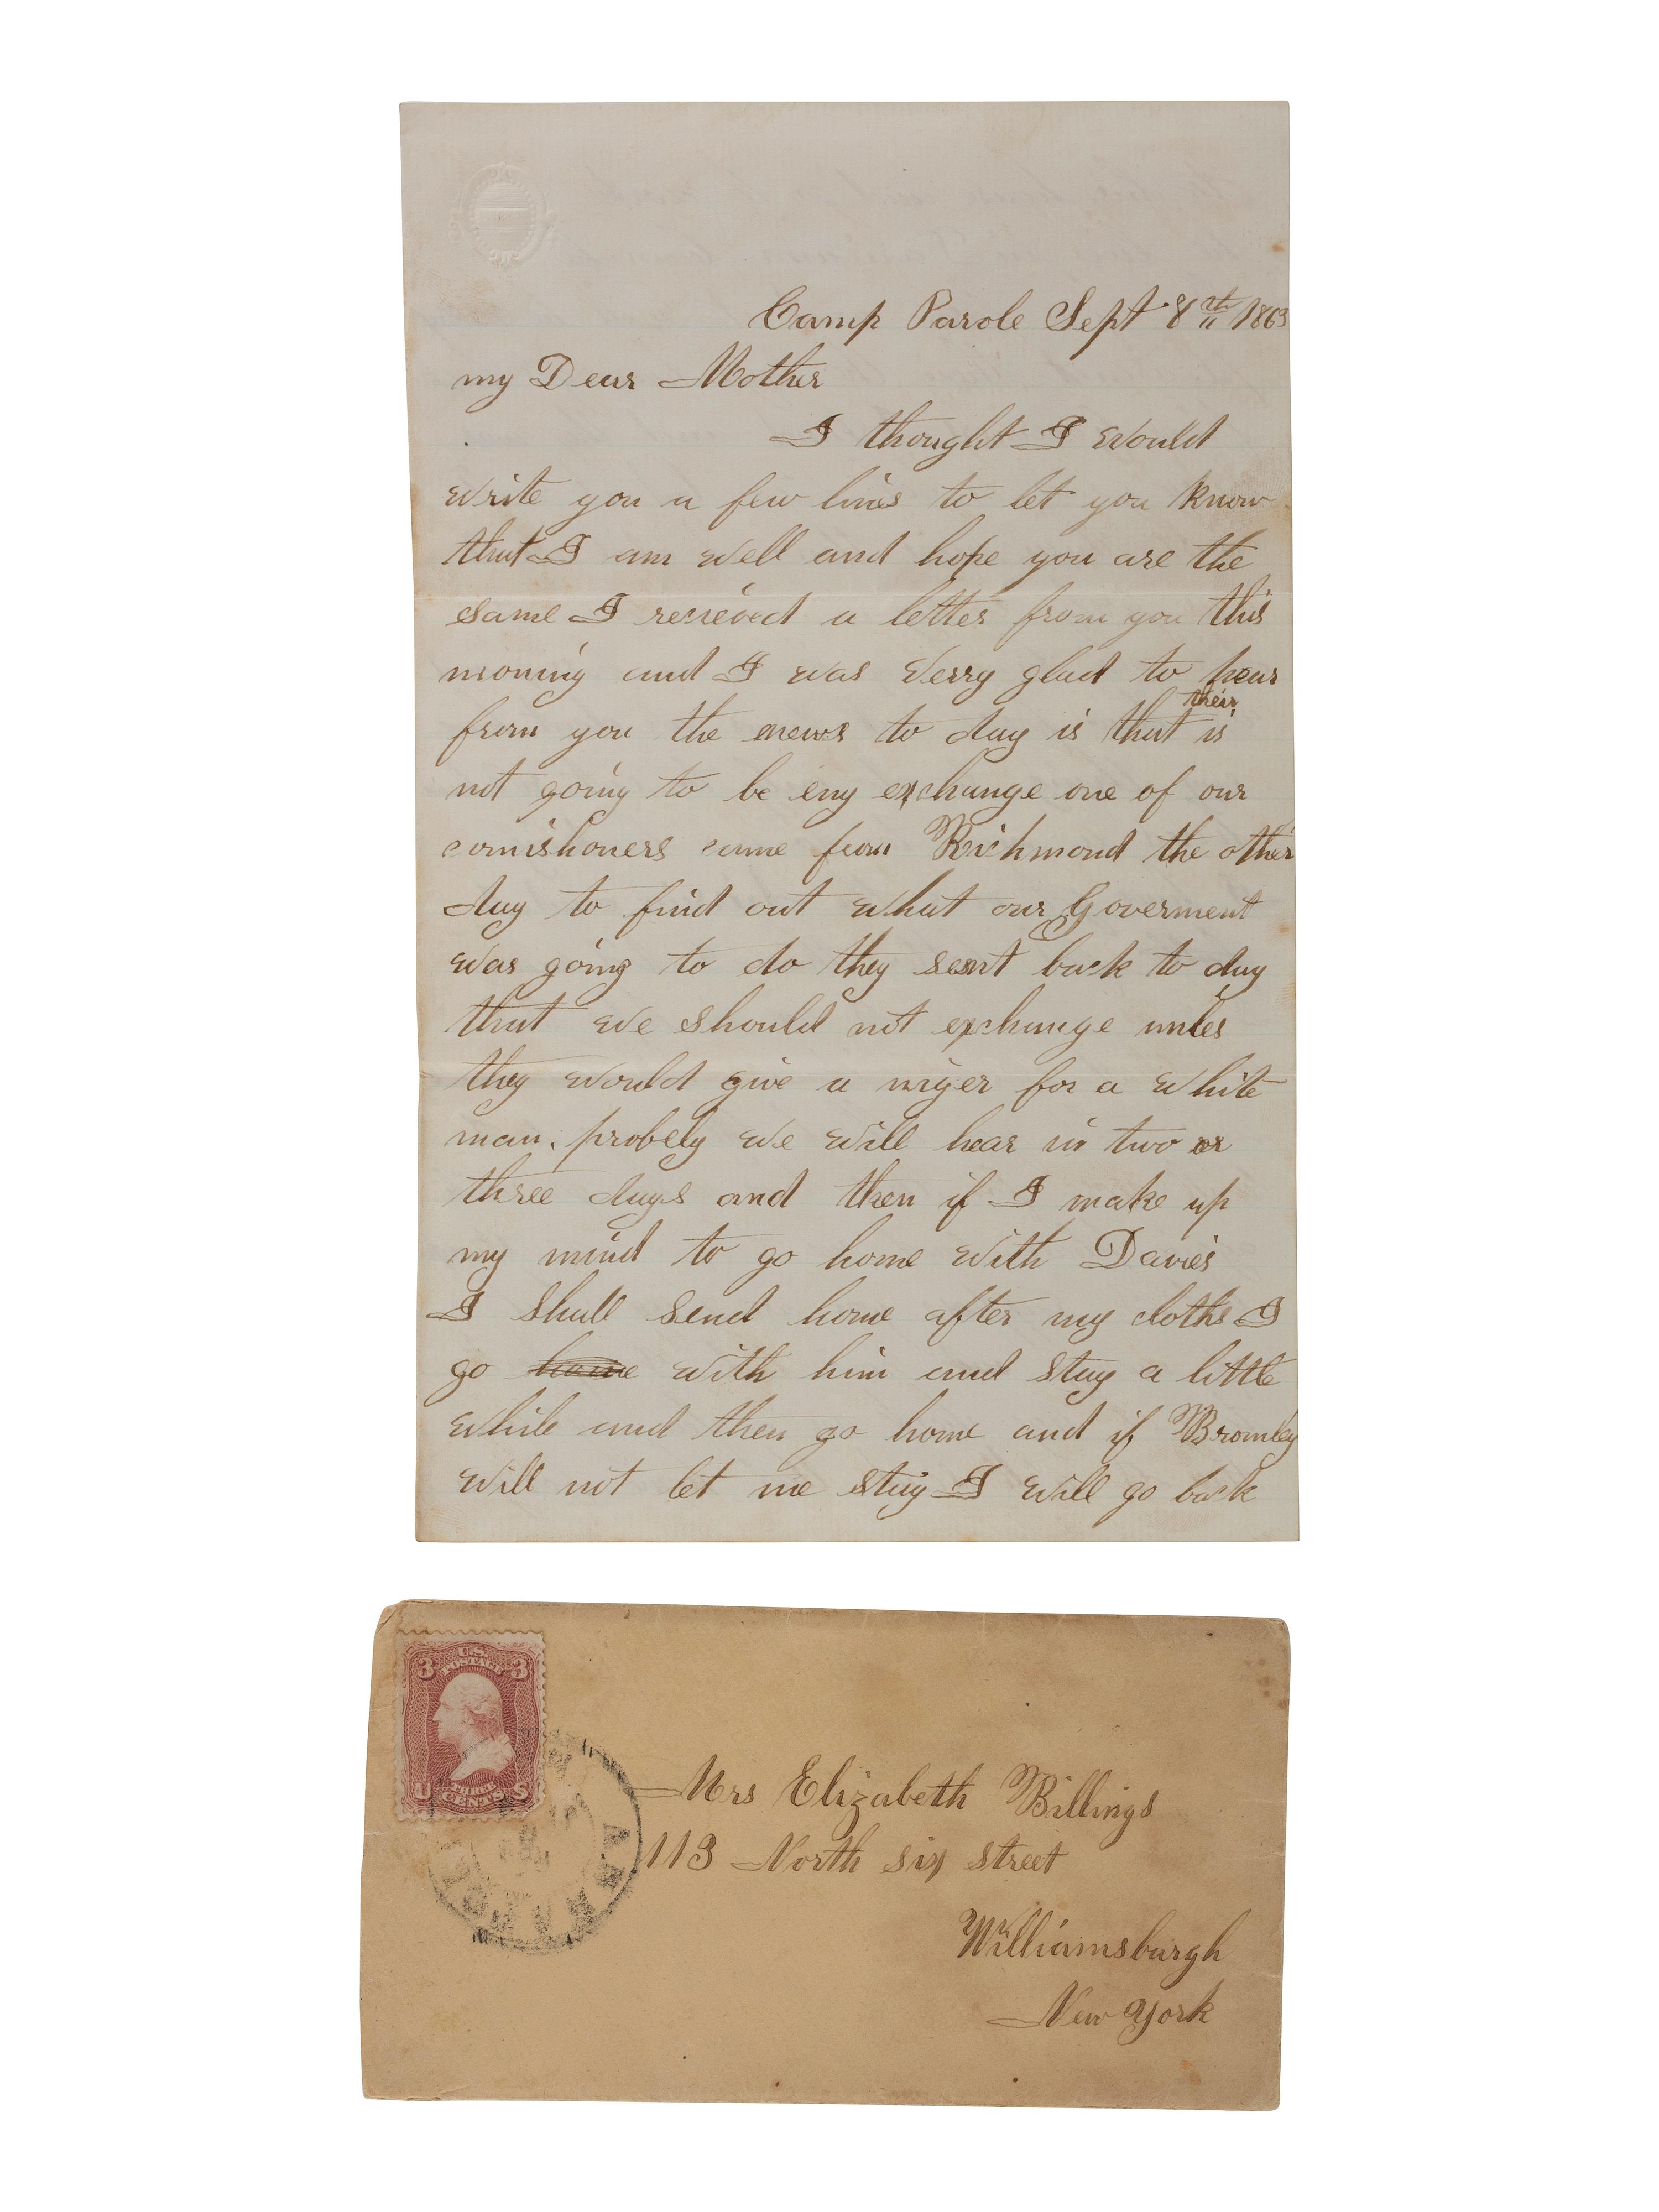 Camp Parole Sept 8th 1863
my Dear Mother
I thought I would
write you a few lines to let you know
that I am well and hope you are the
same I recieved a letter from you this
moning and I was verry glad to hear
from you the news to day is that their is
not going to be eny exchange one of our
comishoners came from Richmond the other
day to find out what our Goverment
was going to do they sent back to day
that we should not exchange unles
they would give a niger for a white
man. probely we will hear in two or
three days and then if I make up
my mind to go home with Davies
I shall send home after my cloths I
go home with him and stay a little
while and then go home and if Bromley
will not let me stay I will go back
U.S. POSTAGE
3 3
U THREE CENTS S
Mrs Elizabeth Billings
113 North six street
Williamsburgh
New York